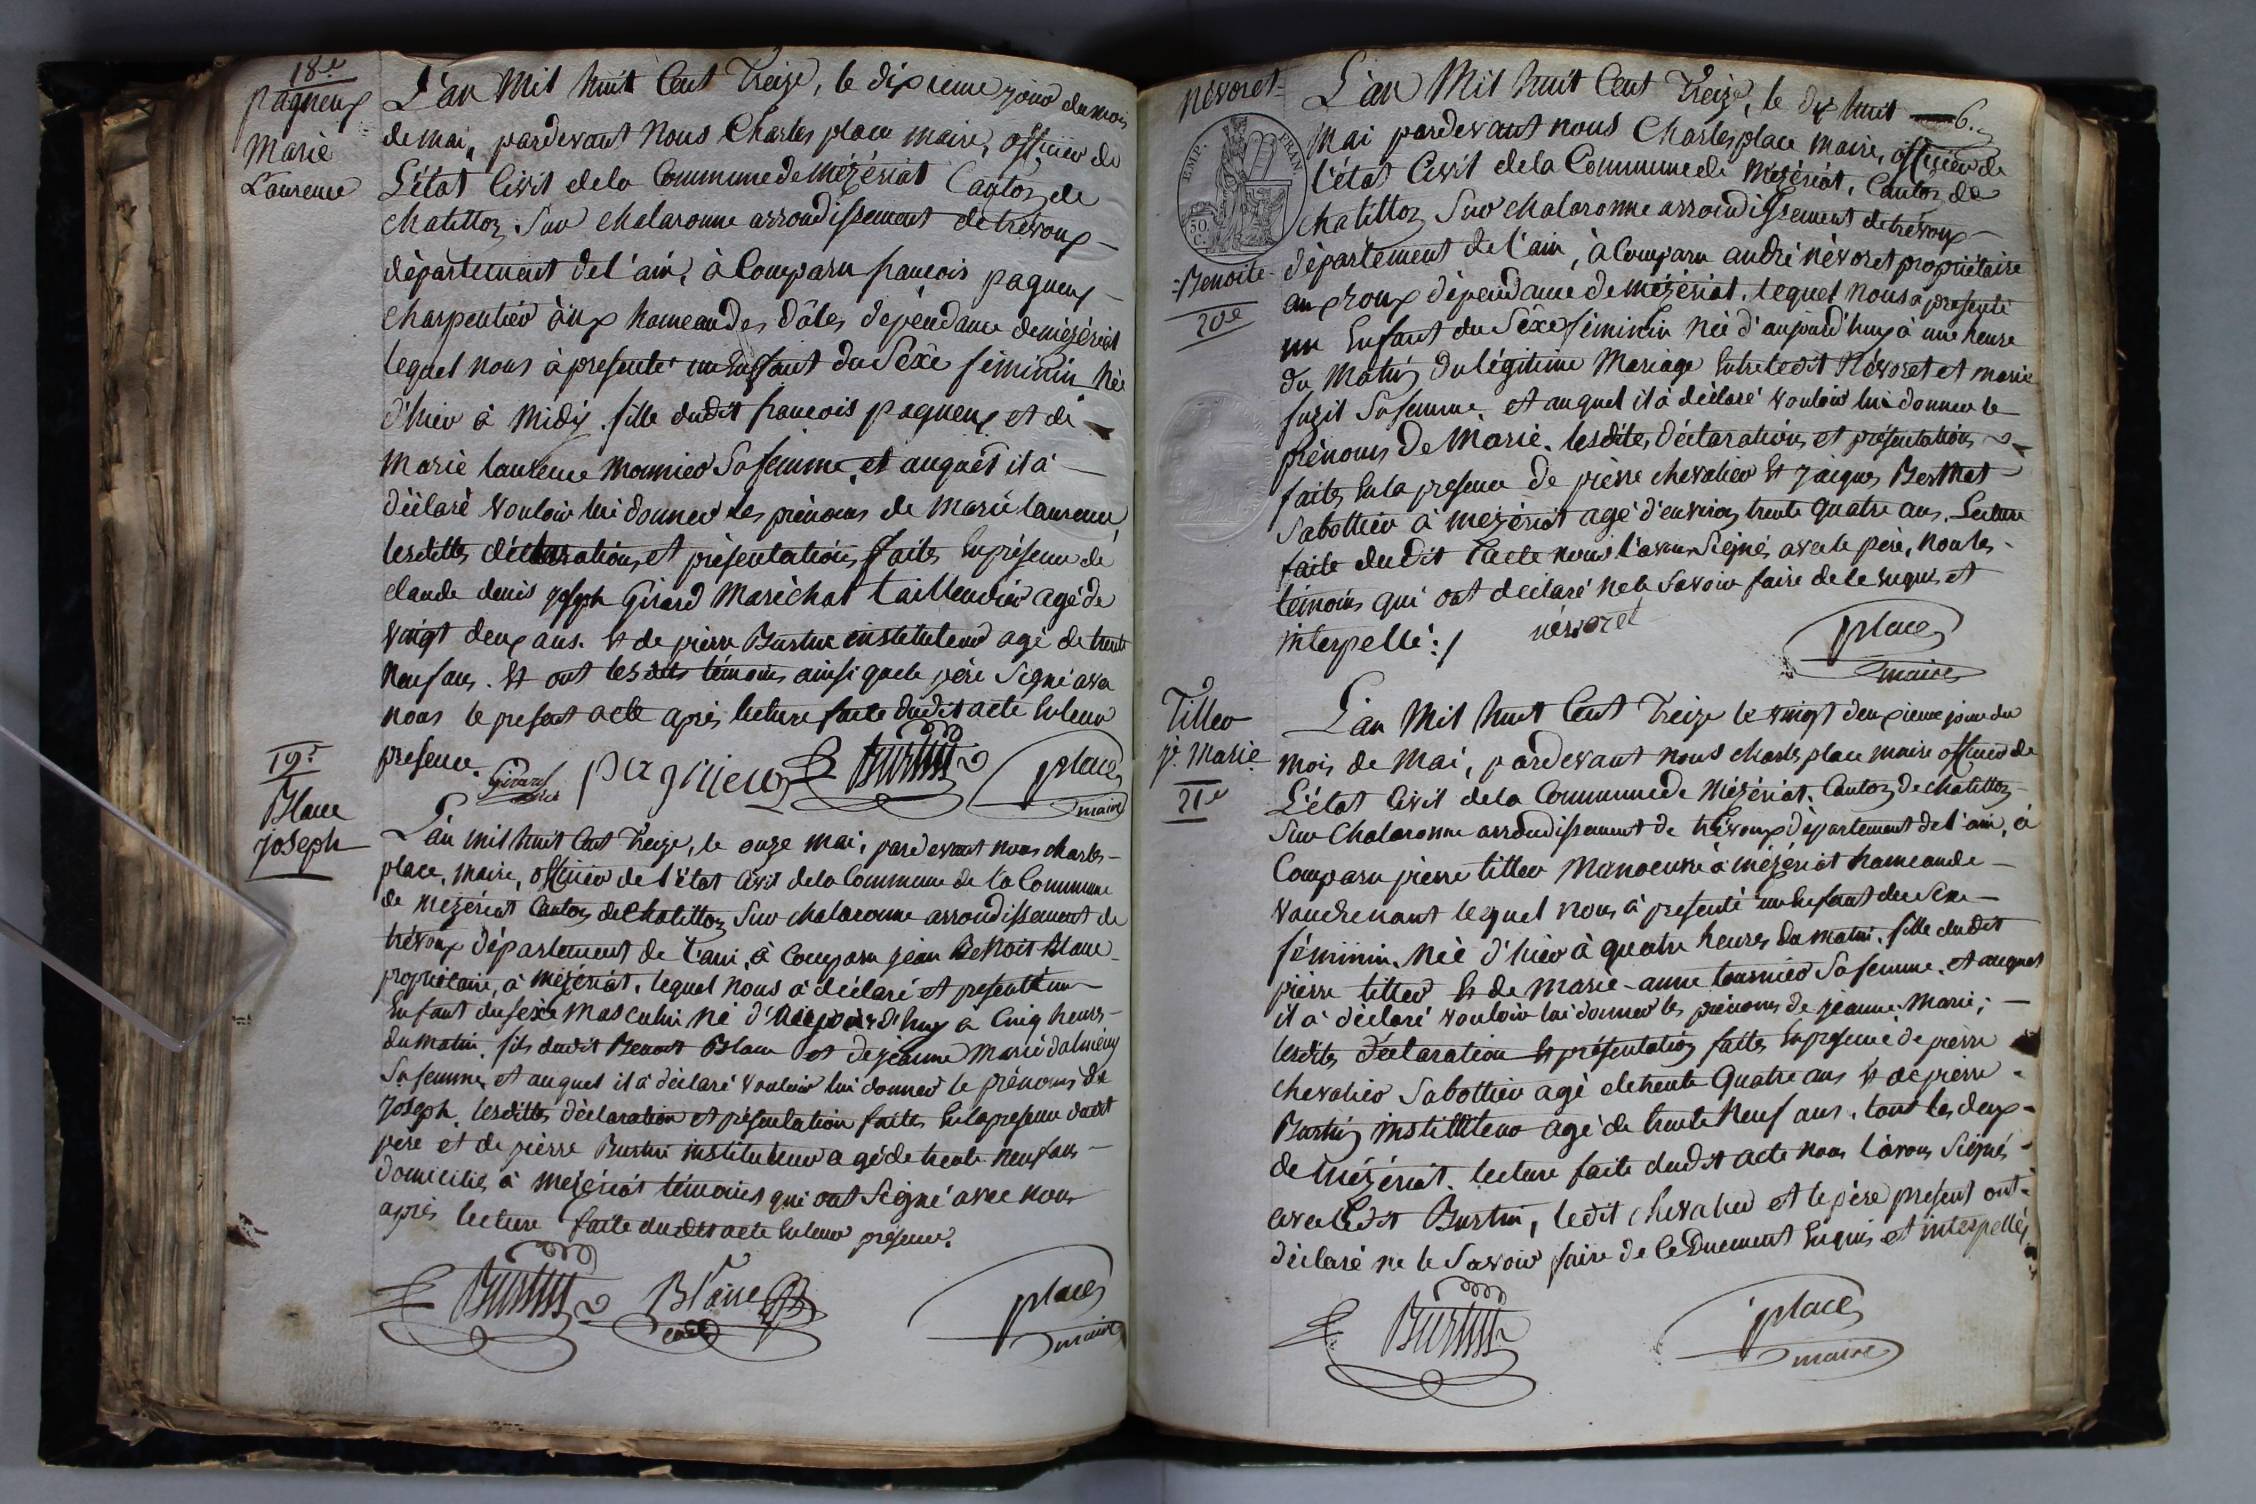 18e
pagneux
Marie
Laurence
L'an Mil huit Cent Treize, le dixieme jour du mois
de mai, pardevant Nous Charles place maire, officier de
L'état Civil de la Commune de Mézériat Canton de
chatillon Sur chalaronne arrondissement de trévoux
département de l'ain, à Comparu françois pagneux
charpentier aux hameau des dâles dépendance de mézériat
lequel nous à presenté un Enfant du Séxe féminin Née
d'hier à Midy. fille dudit françois pagneux et de
marie laurence monnier Sa femme, et auquel il à
déclaré vouloir lui donner les prénoms de marie laurence
lesdittes déclaration et présentation faites En présence de
claude denis joseph Girard Maréchal taillandier agé de
vingt deux ans. Et de pierre Burtin instituteur agé de trente
neuf ans. Et ont lesdits témoins ainsi que le père Signé avec
nous le present acte après lecture faite dudit acte En leur
presence.
Girard pagneux Burtin place
maire
19e
Blanc
joseph
L'an mil huit Cent Treize, le onze mai, pardevant nous charles
place, maire, officier de l'état Civil de la Commune de la Commune
de mézériat Canton de Chatillon Sur chalaronne arrondissement de
trévoux département de l'ain, à Comparu jean Benoit Blanc
propriétaire, à mézériat, lequel nous à déclaré et presenté un
Enfant du séxe masculin né d'aujourd'huy à Cinq heures
du matin. fils dudit Benoit Blanc et de jeanne marie
Sa femme, et auquel il à déclaré vouloir lui donner le prénoms de
Joseph. lesdittes déclaration et présentation faites En la presence dudit
père et de pièrre Burtin instituteur agé de trente neuf ans
domicilies à mézériat témoins qui ont Signé avec nous
après lecture faite dudit acte En leur présence.
Burtin Blanc place
maire
névoret
Benoite
20e
EMP. FRAN.
50
C.
L'an Mil huit Cent Treize, le dix huit 6.
mai pardevant nous Charles place Maire, officier de
l'état Civil de la Commune de Mézériat, Canton de
chatillon Sur chalaronne arrondissement de trévoux
département de l'ain, à Comparu andré névoret propriétaire
au proux dépendance de mézériat, lequel nous à presenté
un Enfant du Séxe féminin Née d'aujourd'huy à une heure
du Matin du légitime Mariage Entre ledit Névoret et marie
Sa femme, et auquel il à déclaré vouloir lui donner le
prénoms de Marie. lesdites déclaration et présentation
faites En la presence de pièrre chevalier Et jacques Berthet
Sabottier à mezériat agé d'environ trente quatre ans. Lecture
faite du dit L'acte nous l'avons Signé avec le père, non les
témoins qui ont déclaré ne le Savoir faire de ce Enquis et
interpellé./
névoret place
maire
Tiller
je. Marie
21e
L'an Mil huit Cent Treize le vingt deuxieme jour du
mois de Mai, pardevant nous charles place maire officier de
L'état Civil de la Commune de Mézériat. Canton de chatillon
Sur Chalaronne arrondissement de trévoux département de l'ain, à
Comparu pierre tiller Manoeuvre à mézériat hameau de
vaudrenant lequel nous à presenté un Enfant du Sexe
féminin. Née d'hier à quatre heures du matin. fille dudit
pièrre tiller Et de marie-anne tournier Sa femme. et auquel
il à déclaré vouloir lui donner les prénoms de jeanne Marie;
lesdites déclaration Et présentation faites En presence de pierre
chevalier Sabottier agé de trente Quatre ans Et de pierre
Burtin instituteur agé de trente Neuf ans. tout les deux
de Mézériat. lecture faite dudit acte nous l'avons Signé
avec ledit Burtin, ledit chevalier et le père present ont
déclaré ne le Savoir faire de Ce Duement Enquis et interpellés
Burtin place
maire